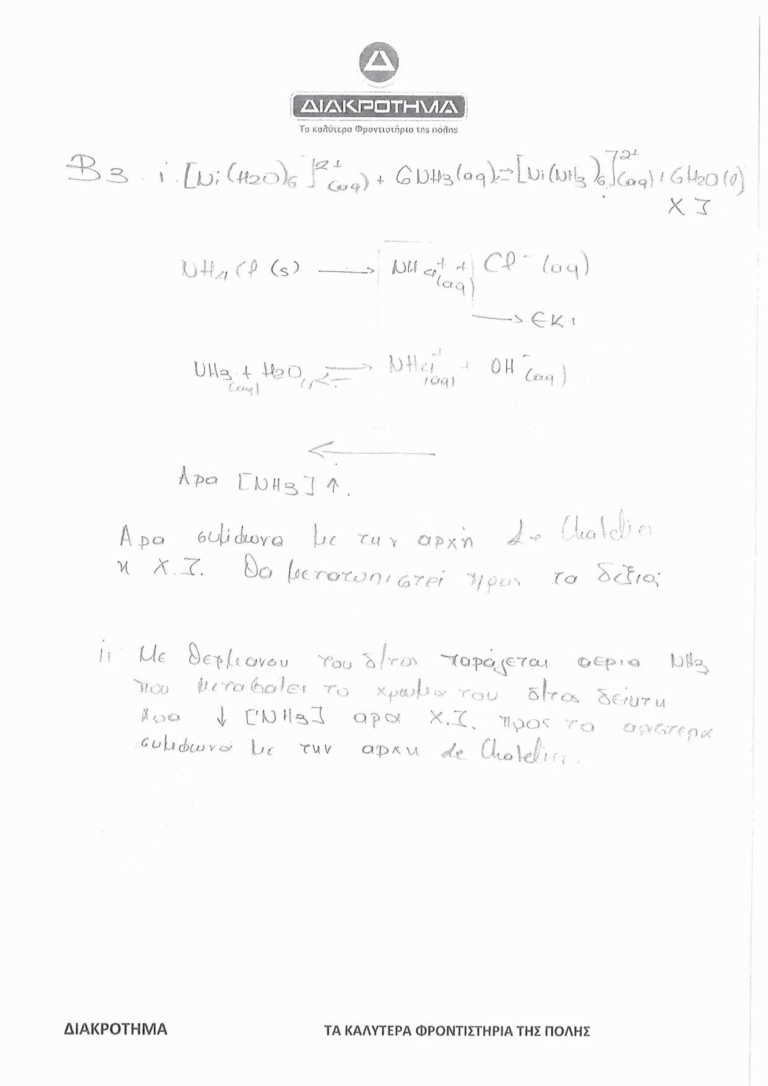 ΔΙΑΚΡΟΤΗΜΑ
Τα καλύτερα Φροντιστήρια της πόλης
B3 i. [Ni(H2O)6]2+(aq) + 6NH3(aq) ⇌ [Ni(NH3)6]2+(aq) + 6H2O(l)
X I
NH4Cl (s) → NH4+(aq) + Cl- (aq)
→ ΕΚΙ
NH3(aq) + H2O(l) ⇌ NH4+(aq) + OH-(aq)
←
Αρα [NH3] ↑.
Αρα συμφωνα με την αρχή Le Chatelier
η Χ.Ι. θα μετατοπιστεί προς τα δεξιά
ii Με θερμανση του δ/τος παράγεται αέρια NH3
που μεταβαλει το χρωμα του δ/τος δείκτη
Αρα ↓ [NH3] αρα Χ.Ι. προς τα αριστερα
συμφωνα με την αρχη Le Chatelier.
ΔΙΑΚΡΟΤΗΜΑ ΤΑ ΚΑΛΥΤΕΡΑ ΦΡΟΝΤΙΣΤΗΡΙΑ ΤΗΣ ΠΟΛΗΣ